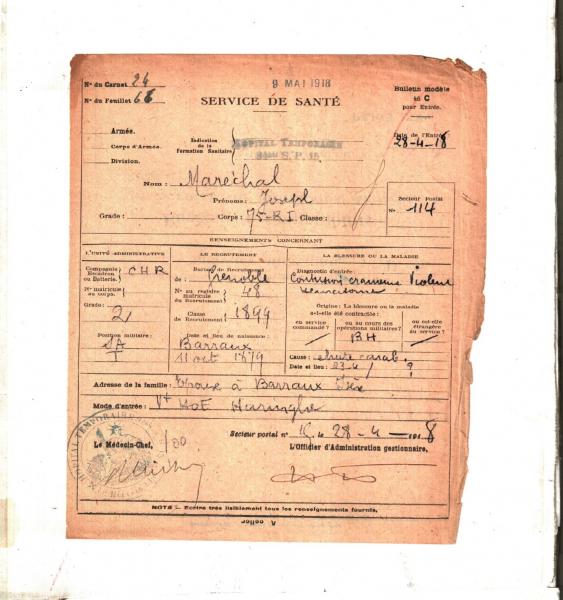 N° du Carnet 24
9 MAI 1918
Bulletin modèle
C
pour Entrée.
N° du Feuillet 68
SERVICE DE SANTÉ
Armée.
Corps d'Armée.
Division.
Indication
de la
Formation Sanitaire
HOPITAL TEMPORAIRE
S.P. 15
Date de l'Entrée
28-4-18
Nom : Maréchal
Prénoms : Joseph
Secteur Postal
N° 114
Grade : Corps : 75-RI Classe :
RENSEIGNEMENTS CONCERNANT
L'UNITÉ ADMINISTRATIVE
Compagnie
Escadron
ou Batterie. CHR
N° matricule
au corps.
Grade :
2
Position militaire :
SA
T
LE RECRUTEMENT
Bureau de Recrutement
de : Grenoble
N° au registre
matricule
du Recrutement 48
Classe
de
Recrutement 1899
Date et lieu de naissance :
Barraux
11 oct 1879
LA BLESSURE OU LA MALADIE
Diagnostic d'entrée :
Violent
Origine : La blessure ou la maladie
a-t-elle été contractée :
en service
commandé ?
ou au cours des
opérations militaires ?
BH
ou est-elle
étrangère
au service ?
Cause :
Date et lieu : 23-4 ?
Adresse de la famille : Epouse à Barraux Isère
Mode d'entrée : Vt HoE
Le Médecin-Chef,
Secteur postal n° 15, le 28-4-1918
L'Officier d'Administration gestionnaire,
NOTA - Ecrire très lisiblement tous les renseignements fournis.
A coller